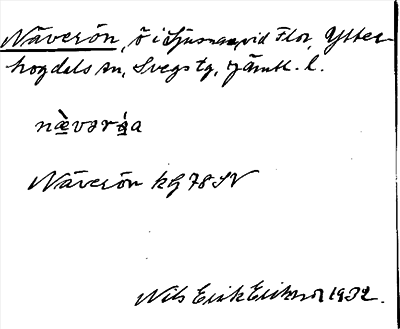 Näverön, ö i Ljusnan, vid Flor, Ytter-
hogdals sn, Svegs tg, Jämtl. l.
Näverön kG 78 SV
Nils Erik Eriksson 1932.